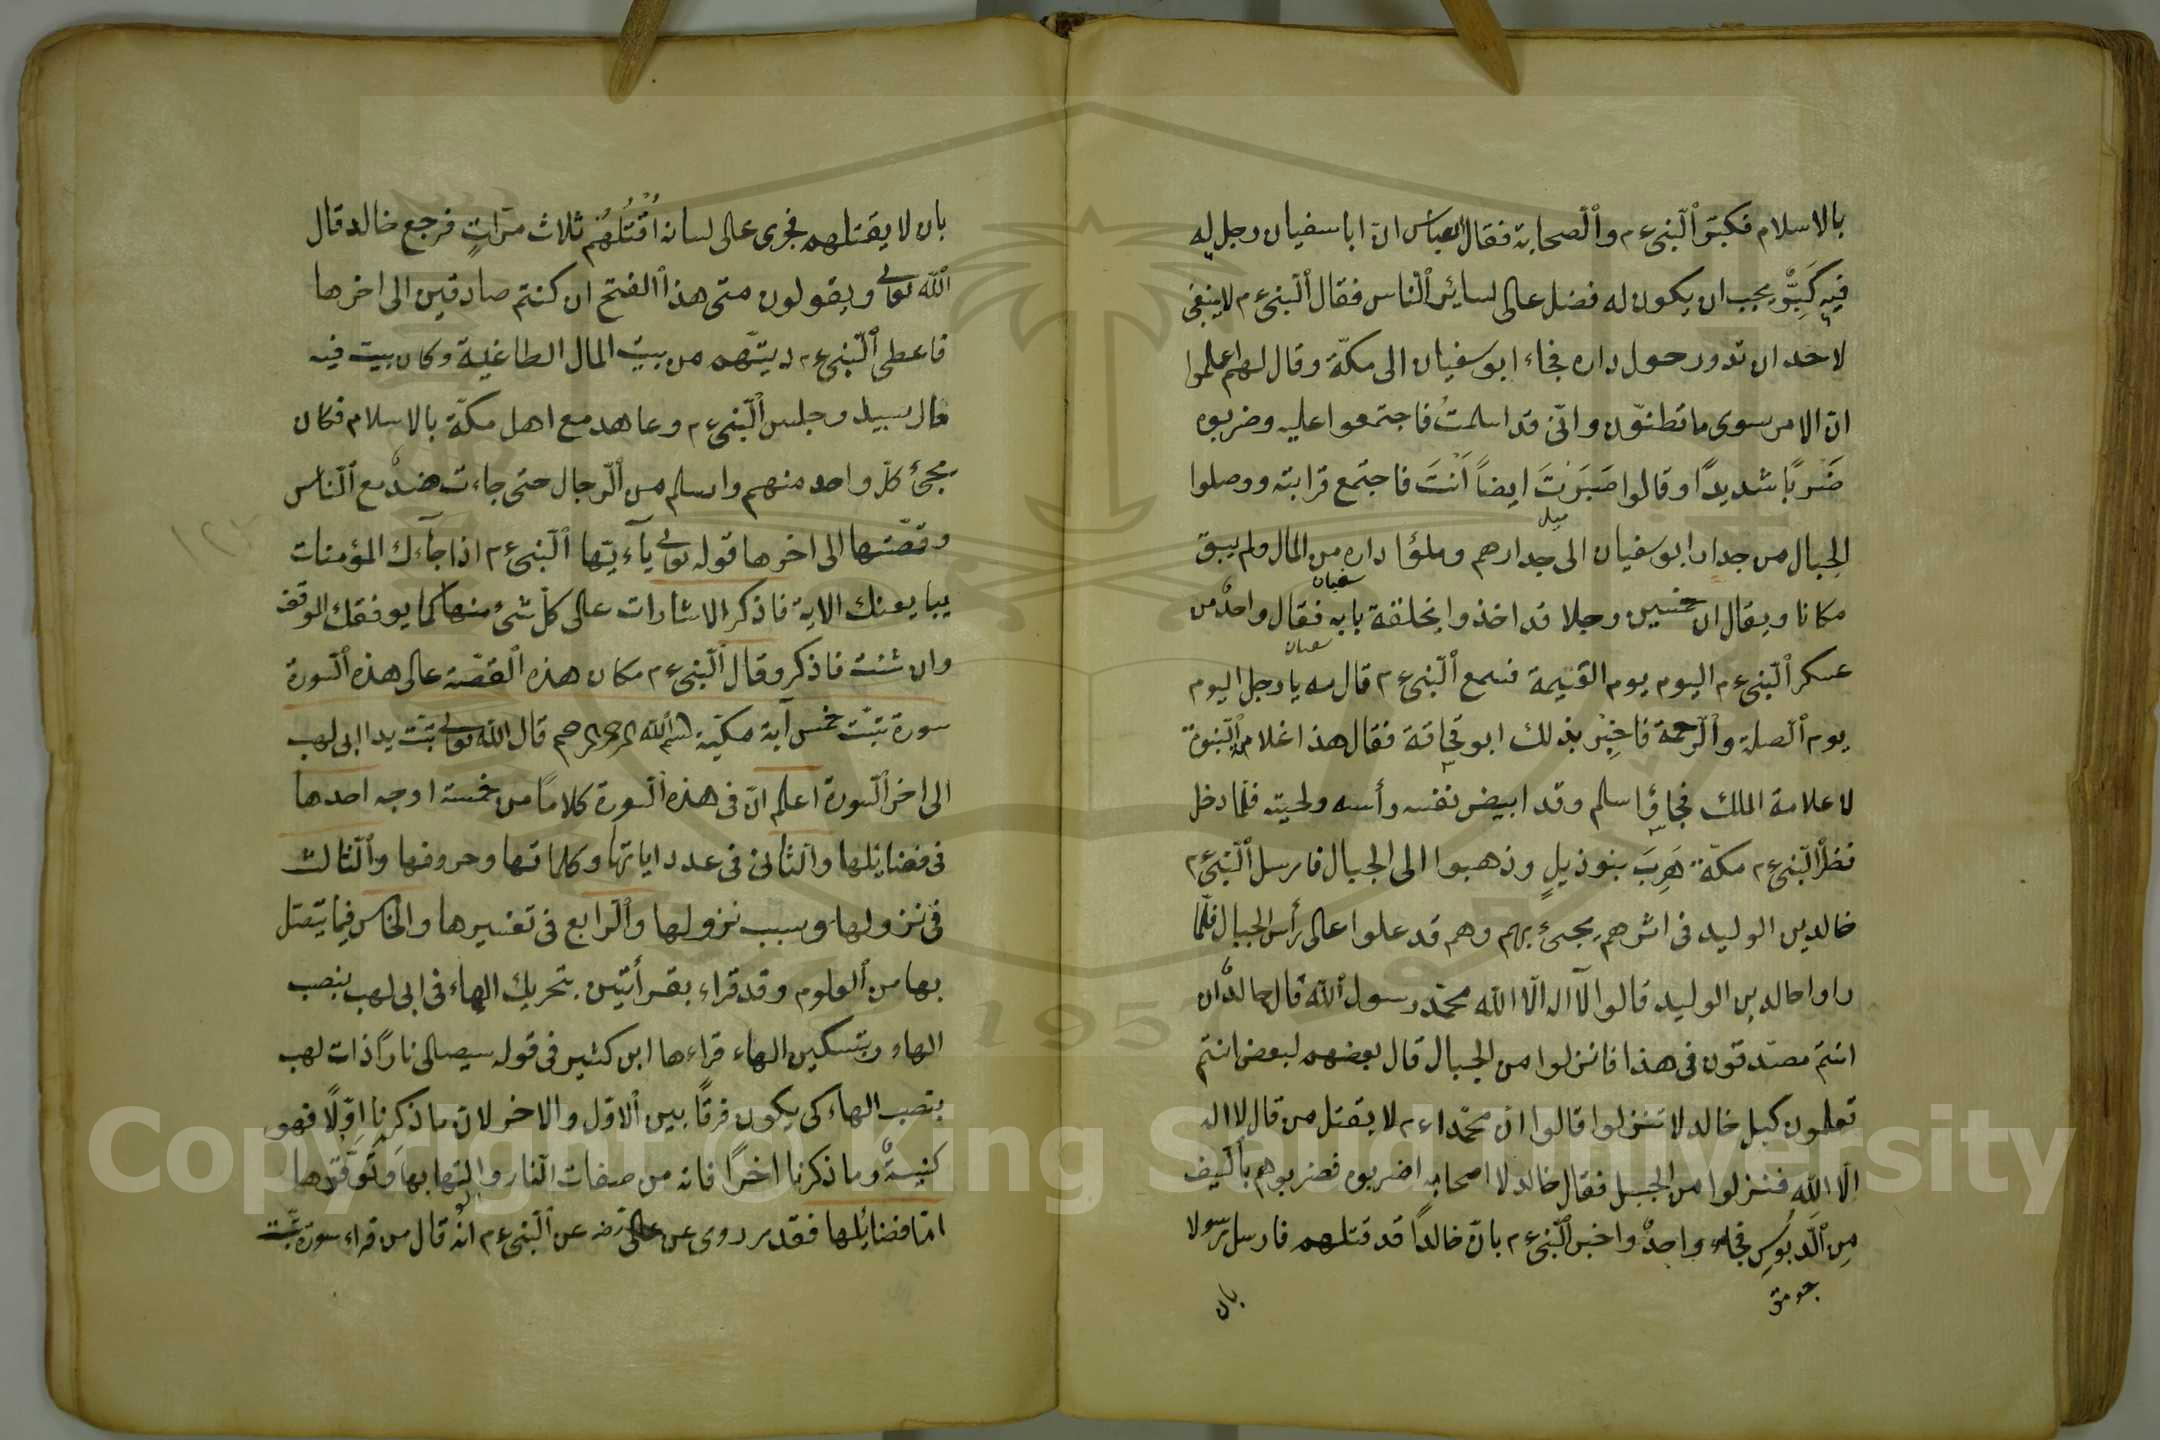 بالاسلام فكبّر ٱلّنبىء م وٱلّصحابة فقال العباس انّ ابا سفيان رجل له
فيه كِبَرٌ يجب ان يكون له فضل عالى لسائر ٱلنّاس فقال ٱلّنبىء م لا ينبغى
لاحد ان تدور حول داره فجاء ابو سفيان الى مكّة وقال لهم اعلموا
انّ الامر سوى ما تظنّون وانّى قد اسلمتُ فاجتمعوا عليه وضربوه
ضَرْبًا شديدًا وقالوا صَبَرْتَ ايضاً اَنْتَ فاجتمع قرابته ووصلوا
الجبال من جدار ابو سفيان الى جدارهم وملؤا داره من المال ولم يبق
مكانا ويقال ان خمسين رجلا قد اخذوا بخلقة بابه فقال واحدٌ من
سفيان
عسكر ٱلّنبىء م اليوم يوم القيٰمة فسمع ٱلّنبىء م قال مه يا رجل اليوم
يوم ٱلصلة وٱلّرحمة فاخبر بذلك ابو قحافة فقال هذا غلامة ٱلّنبوّة
لا علامة الملك فجاؤ اسلم وقد ابيض نفسه رأسه ولحيته فلمّا دخل
نظر ٱلّنبىء م مكّة هَرِبَ بنوذيل وذهبوا الى الجبال فارسل ٱلّنبىء م
خالد بن الوليد فى اثرهم يجىئ بهم وهم قد علوا عالى رأس الجبال فلّما
راوا خالد بن الوليد قالوا لآ اله الّا اللّه محمّد رسول ٱللّه قال خالدٌ ان
انتم مصدّقون فى هذا فانزلوا من الجبال قال بعضهم لبعض انتم
تعلمون كيل خالد لا تنزلوا قالوا انّ محمّداء م لا يقتل من قال لا اله
الّا اللّه فنزلوا من الجبل فقال خالد لا اصحابه اضربوه فضربوهم بالّسيف
مِن ٱلّدبّوس فجاء واحدٌ واخبر ٱلّنبىء م بانّ خالداً قد قتلهم فارسل رسولا
جومق
بان
بان لا يقتلهم فجرى عالى لسانه اُقْتُلُهُمْ ثلاث مرّاتٍ فرجع خالد قال
ٱللّه تعالى ويقولون متى هذا ٱلفتح ان كنتم صادقين الى اخرها
فاعطى ٱلّنبىء م ديتهم من بيت المال الطاغية وكان بيت فيه
مال سبيل وجلس ٱلّنبىء م وعاهد مع اهل مكّة بالاسلام فكان
يجئ كلّ واحد منهم واسلم من ٱلّرجال حتى جاءت هندٌ مع ٱلّناس
وقصّتها الى اخرها قوله تعالى يآءيّها ٱلّنبىء م اذا جآءك المؤمنات
يبايعنك الاية فاذكر الاشارات عالى كلّ شئ منها كما يوفقك الموفق
وان شئت فاذكر وقال ٱلّنبىء م مكان هذه ٱلقصّة عالى هذه ٱلسّورة
سورة تبّت خمس آية مكيّة بسم اللّه الرحمن الرحيم قال اللّه تعالى تبّت يدا ابى لهب
الى اخر ٱلسّورة اعلم انّ فى هذه ٱلسّورة كلامًا من خمسة اوجه احدها
فى فضائلها وٱلثّانى فى عدد اياتها وكلماتها وحروفها وٱلثّالث
فى نزولها وسبب نزولها وٱلّرابع فى تفسيرها والخامس فيما يتصل
بها من ٱلعلوم وقد قراء بقرأتين بتحريك الهاء فى ابى لهب بنصب
الهاء وبتسكين الهاء قراءها ابن كثير فى قوله سيصالى نارًا ذات لهب
بنصب الهاء كى يكون فرقًا بين ٱلاوّل والاخر لانّ ما ذكرنا اوّلًا فهو
كنيةٌ وما ذكرنا اخرًا فانه من صفات النّار والتهابها وتَوَقّدها
امّا فضائلها فقد روى عن عالى رضه عن ٱلّنبىء م انّه قال من قراء سورة تبّت